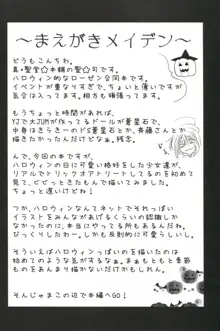 ～まえがきメイデン～
どうもこんちわ。
真・聖堂☆本舗の聖☆司です。
ハロウィン的なローゼン合同本です。
イベントが重なりすぎで、ちょいと薄いですが
気合は入ってます。相方も頑張ってます。
もうちょっと時間があれば、
YJで大JUMが作ってたドールが蒼星石で、
中身はきらきーのドS蒼星石とか、斉藤さんとか
描きたかったんだけどなぁ。残念。
んで、今回の本ですが、
ハロウィンの日に可愛い格好をした少女達が、
リアルでトリックオアトリートしてるのを初めて
見て、ビビっときたもんで描いてみました。
ちょっと強引でしたが。
ハロウィンなんてネットでそれっぽい
イラストをみんながあげるくらいの認識しか
なかったのに、本当にやってる所もあるんだね。
びっくりしたわー。しかも反射的に可愛らしいし。
そういえばハロウィンっぽいのを描いたのは
始めてのような気がする。というか季節もの
あんまり描かないだけかもしれん。
そんじゃまこの辺で本編へGO！